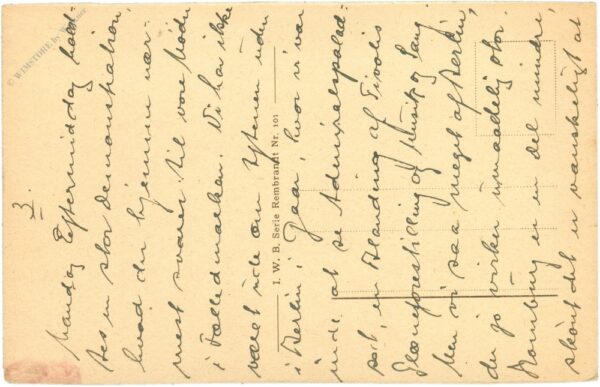 3.
Mandag Eftermiddag hold-
tes en stor Demonstration,
hvad der hjemme nær-
mest svarer til vore Møder
i Fælledparken. Vi har ikke
været ude om Aftenen uden
i Berlin, i Gaar, hvor vi var
inde at se Admiralspalad-
set, en Blanding af Tivolis
Plæneforestilling og Musik og Sang.
Men vi saa meget af Berlin,
der jo virker umaadelig stor.
Hamburg er en del mindre,
skønt det er vanskeligt at
I. W. B. Serie Rembrandt Nr. 101